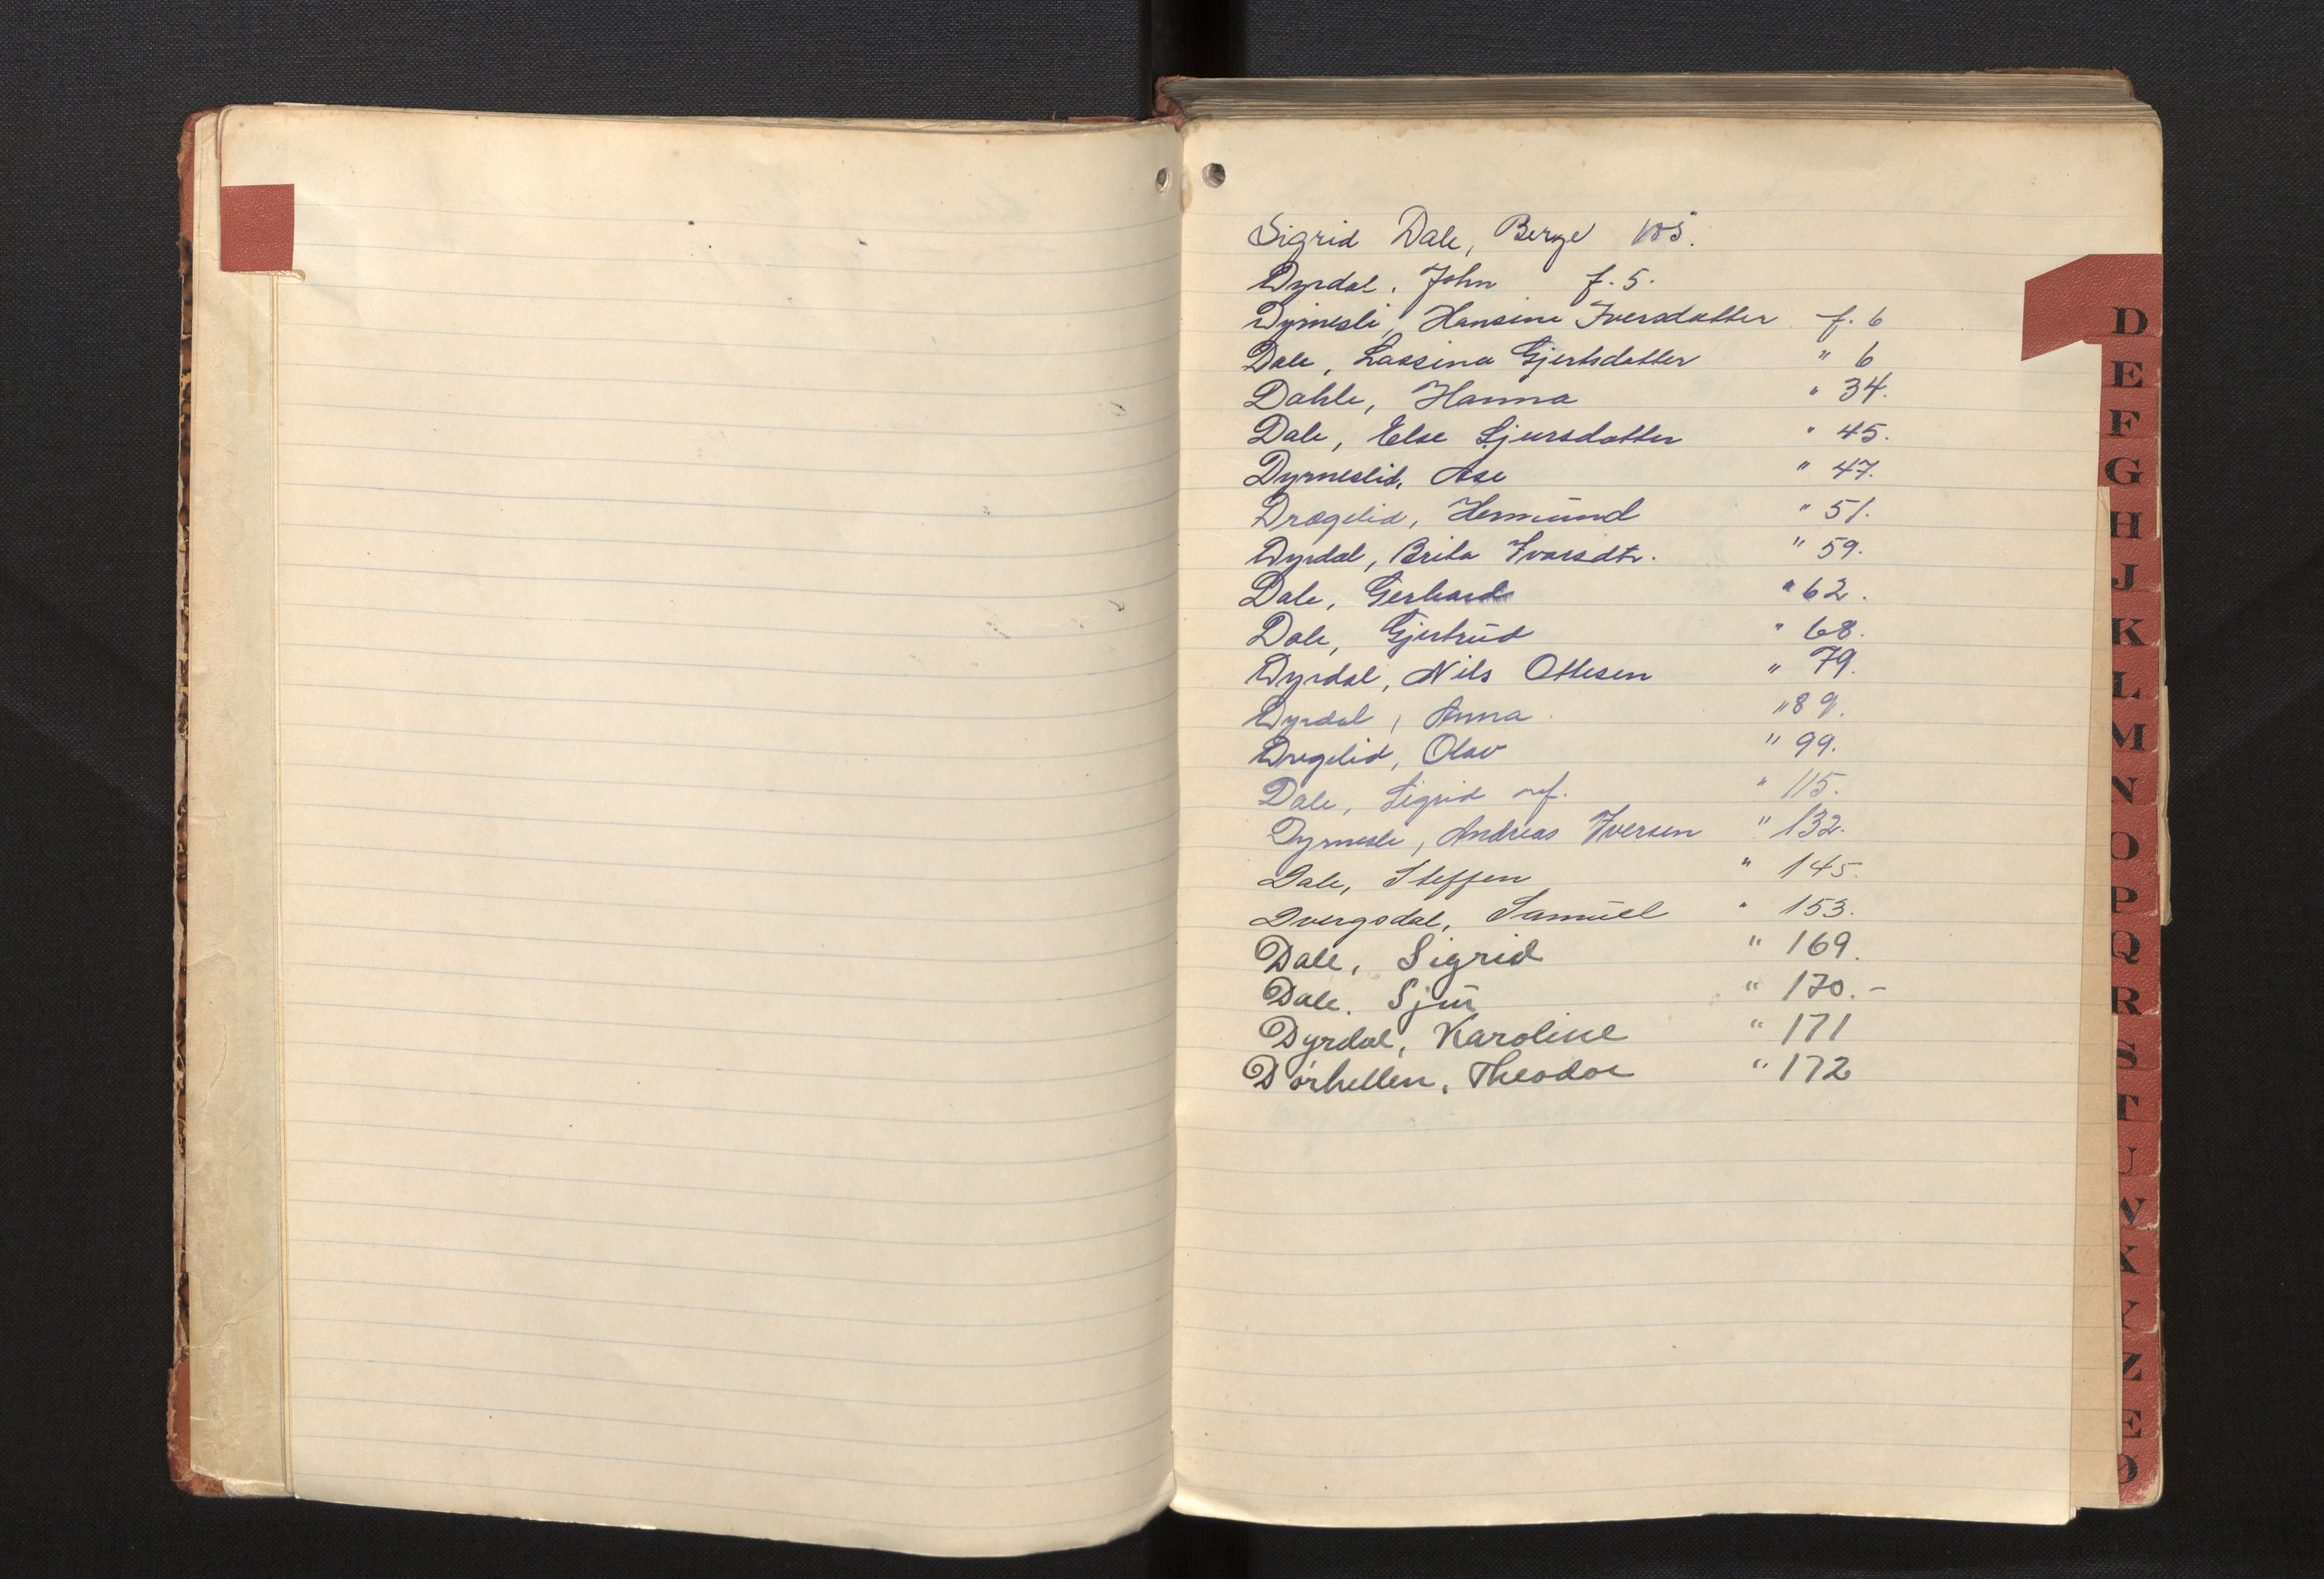 Sigrid Dale, Berge 105.
Dyrdal, John f. 5.
Dyrnesli, Hansine Iversdatter f. 6
Dale, Lassina Gjertsdatter " 6
Dahle, Hanna " 34.
Dale, Else Sjursdatter " 45.
Dyrneslid, Åse " 47.
Drægelid, Hermund " 51.
Dyrdal, Brita Ivarsdtr. " 59.
Dale, Gerhard " 62.
Dale, Gjertrud " 68.
Dyrdal, Nils Ottesen " 79.
Dyrdal, Anna " 89.
Dregelid, Olav " 99.
Dale, Sigrid " 115.
Dyrnesli, Andreas Iversen " 132.
Dale, Steffen " 145.
Dvergsdal, Samuel " 153.
Dale, Sigrid " 169.
Dale. Sjur " 170.-
Dyrdal, Karoline " 171
Dørhellen, Theodor " 172
D
E
F
G
H
J
K
L
M
N
O
P
Q
R
S
T
U
X
Y
Z
Ø